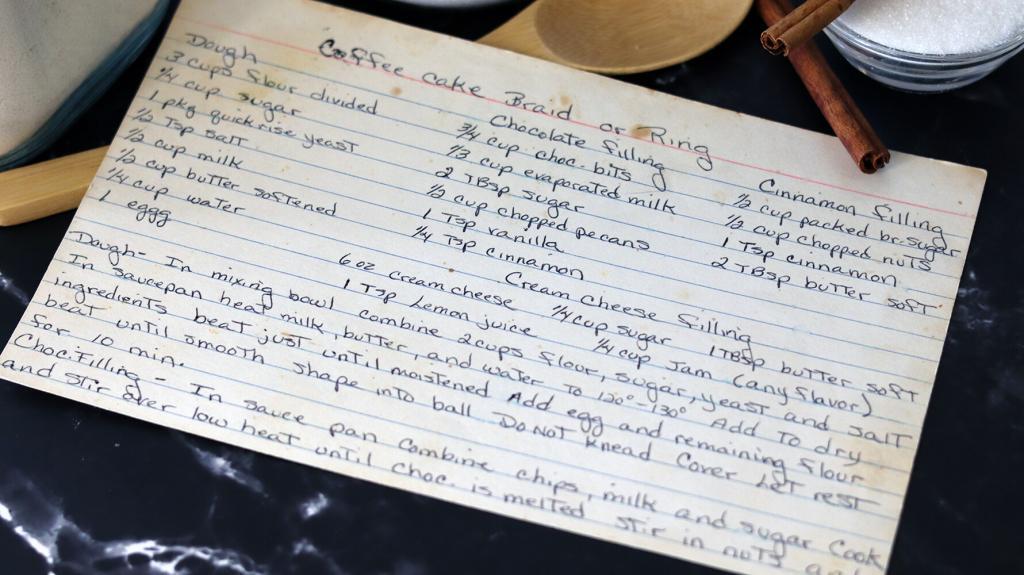 Coffee cake Braid or Ring
Dough
3 cups flour divided
1/4 cup sugar
1 pkg quick rise yeast
1/2 Tsp salt
1/2 cup milk
1/2 cup butter softened
1/4 cup water
1 eggg
Chocolate filling
3/4 cup choc. bits
1/3 cup evaporated milk
2 TBsp sugar
1/2 cup chopped pecans
1 Tsp vanilla
1/4 Tsp cinnamon
Cinnamon filling
1/2 cup packed br. sugar
1/2 cup chopped nuts
1 Tsp cinnamon
2 TBsp butter soft
Cream Cheese filling
6 oz cream cheese 1/4 cup sugar 1 TBsp butter soft
1 Tsp Lemon juice 1/4 cup Jam (any flavor)
Dough - In mixing bowl combine 2 cups flour, sugar, yeast and salt
In saucepan heat milk, butter, and water to 120°-130° Add to dry
ingredients beat just until moistened Add egg and remaining flour
beat until smooth shape into ball Do NoT Knead Cover Let rest
for 10 min.
Choc. Filling - In sauce pan combine chips, milk and sugar Cook
and stir over low heat until choc. is melted stir in nuts